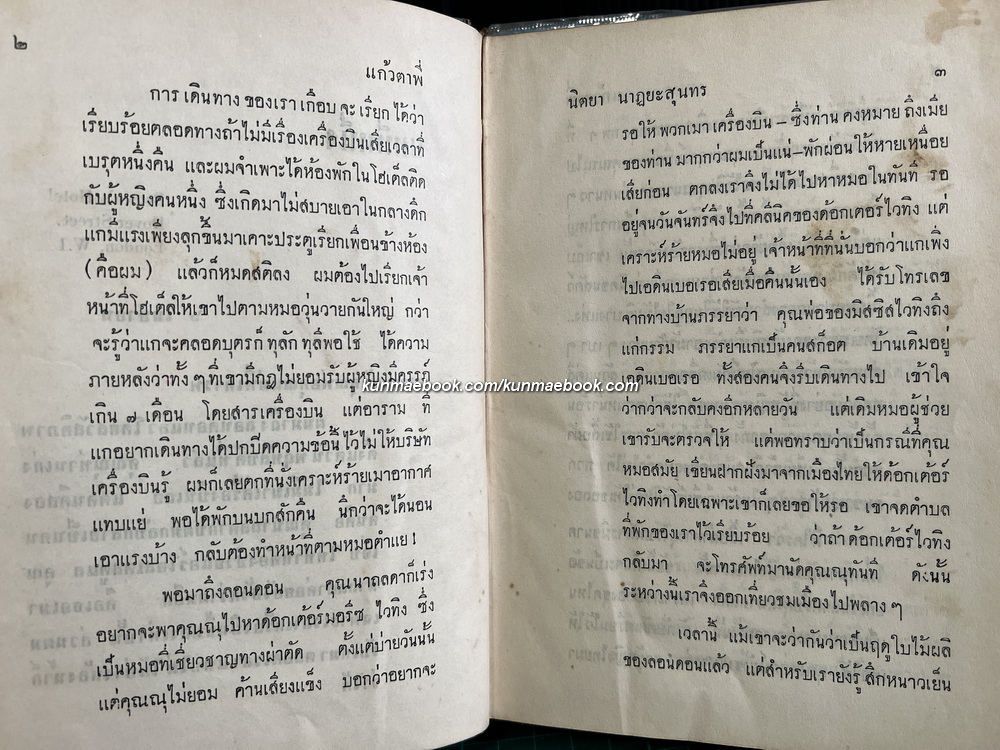 ๒
แก้วตาพี่
การ เดินทาง ของเรา เกือบ จะ เรียก ได้ว่า
เรียบร้อยตลอดทางถ้าไม่มีเรื่องเครื่องบินเสียเวลาที่
เบรุตหนึ่งคืน และผมจำเพาะได้ห้องพักในโฮเต็ลติด
กับผู้หญิงคนหนึ่ง ซึ่งเกิดมาไม่สบายเอาในกลางดึก
แกมีแรงเพียงลุกขึ้นมาเคาะประตูเรียกเพื่อนข้างห้อง
(คือผม) แล้วก็หมดสติลง ผมต้องไปเรียกเจ้า
หน้าที่โฮเต็ลให้เขาไปตามหมอวุ่นวายกันใหญ่ กว่า
จะรู้ว่าแกจะคลอดบุตรก็ ทุลัก ทุลีพอใช้ ได้ความ
ภายหลังว่าทั้ง ๆ ที่เขามีกฎไม่ยอมรับผู้หญิงมีครรภ์
เกิน ๗ เดือน โดยสารเครื่องบิน แต่อาราม ที่
แกอยากเดินทางได้ปกปิดความข้อนี้ไว้ไม่ให้บริษัท
เครื่องบินรู้ ผมก็เลยตกที่นั่งเคราะห์ร้ายเมาอากาศ
แทบแย่ พอได้พักบนบกสักคืน นึกว่าจะได้นอน
เอาแรงบ้าง กลับต้องทำหน้าที่ตามหมอตำแย!
พอมาถึงลอนดอน คุณนาถลดาก็เร่ง
อยากจะพาคุณณุไปหาด๊อกเต้อร์มอรีซ ไวทิง ซึ่ง
เป็นหมอที่เชี่ยวชาญทางผ่าตัด ตั้งแต่บ่ายวันนั้น
แต่คุณณุไม่ยอม ค้านเสียงแข็ง บอกว่าอยากจะ
๓
นิตยา นาฏยะสุนทร
รอให้ พวกเมา เครื่องบิน – ซึ่งท่าน คงหมาย ถึงเมีย
ของท่าน มากกว่าผมเป็นแน่–พักผ่อนให้หายเหนื่อย
เสียก่อน ตกลงเราจึงไม่ได้ไปหาหมอในทันที รอ
อยู่จนวันจันทร์จึงไปที่คลีนิคของด๊อกเตอร์ไวทิง แต่
เคราะห์ร้ายหมอไม่อยู่ เจ้าหน้าที่ที่นั่นบอกว่าแกเพิ่ง
ไปเอดินเบอเรอเสียเมื่อคืนนั้นเอง ได้รับโทรเลข
จากทางบ้านภรรยาว่า คุณพ่อของมิสซิสไวทิงถึง
แก่กรรม ภรรยาแกเป็นคนสก็อต บ้านเดิมอยู่
เอดินเบอเรอ ทั้งสองคนจึงรีบเดินทางไป เข้าใจ
ว่ากว่าจะกลับคงอีกหลายวัน แต่เดิมหมอผู้ช่วย
เขารับจะตรวจให้ แต่พอทราบว่าเป็นกรณีที่คุณ
หมอสมัย เขียนฝากฝังมาจากเมืองไทยให้ด๊อกเต้อร์
ไวทิงทำโดยเฉพาะเขาก็เลยขอให้รอ เขาจดตำบล
ที่พักของเราไว้เรียบร้อย ว่าถ้า ด๊อกเต้อร์ไวทิง
กลับมา จะโทรศัพท์มานัดคุณณุทันที ดังนั้น
ระหว่างนี้เราจึงออกเที่ยวชมเมืองไปพลาง ๆ
เวลานี้ แม้เขาจะว่ากันว่าเป็นฤดูใบไม้ผลิ
ของลอนดอนแล้ว แต่สำหรับเรายังรู้สึกหนาวเย็น
kunmaebook.com/kunmaebook.com